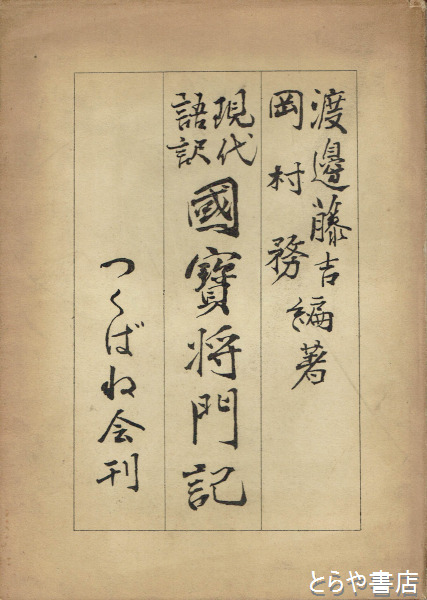 渡邊藤吉
岡村務編著
現代
語訳
國寶将門記
つくばね会刊
とらや書店